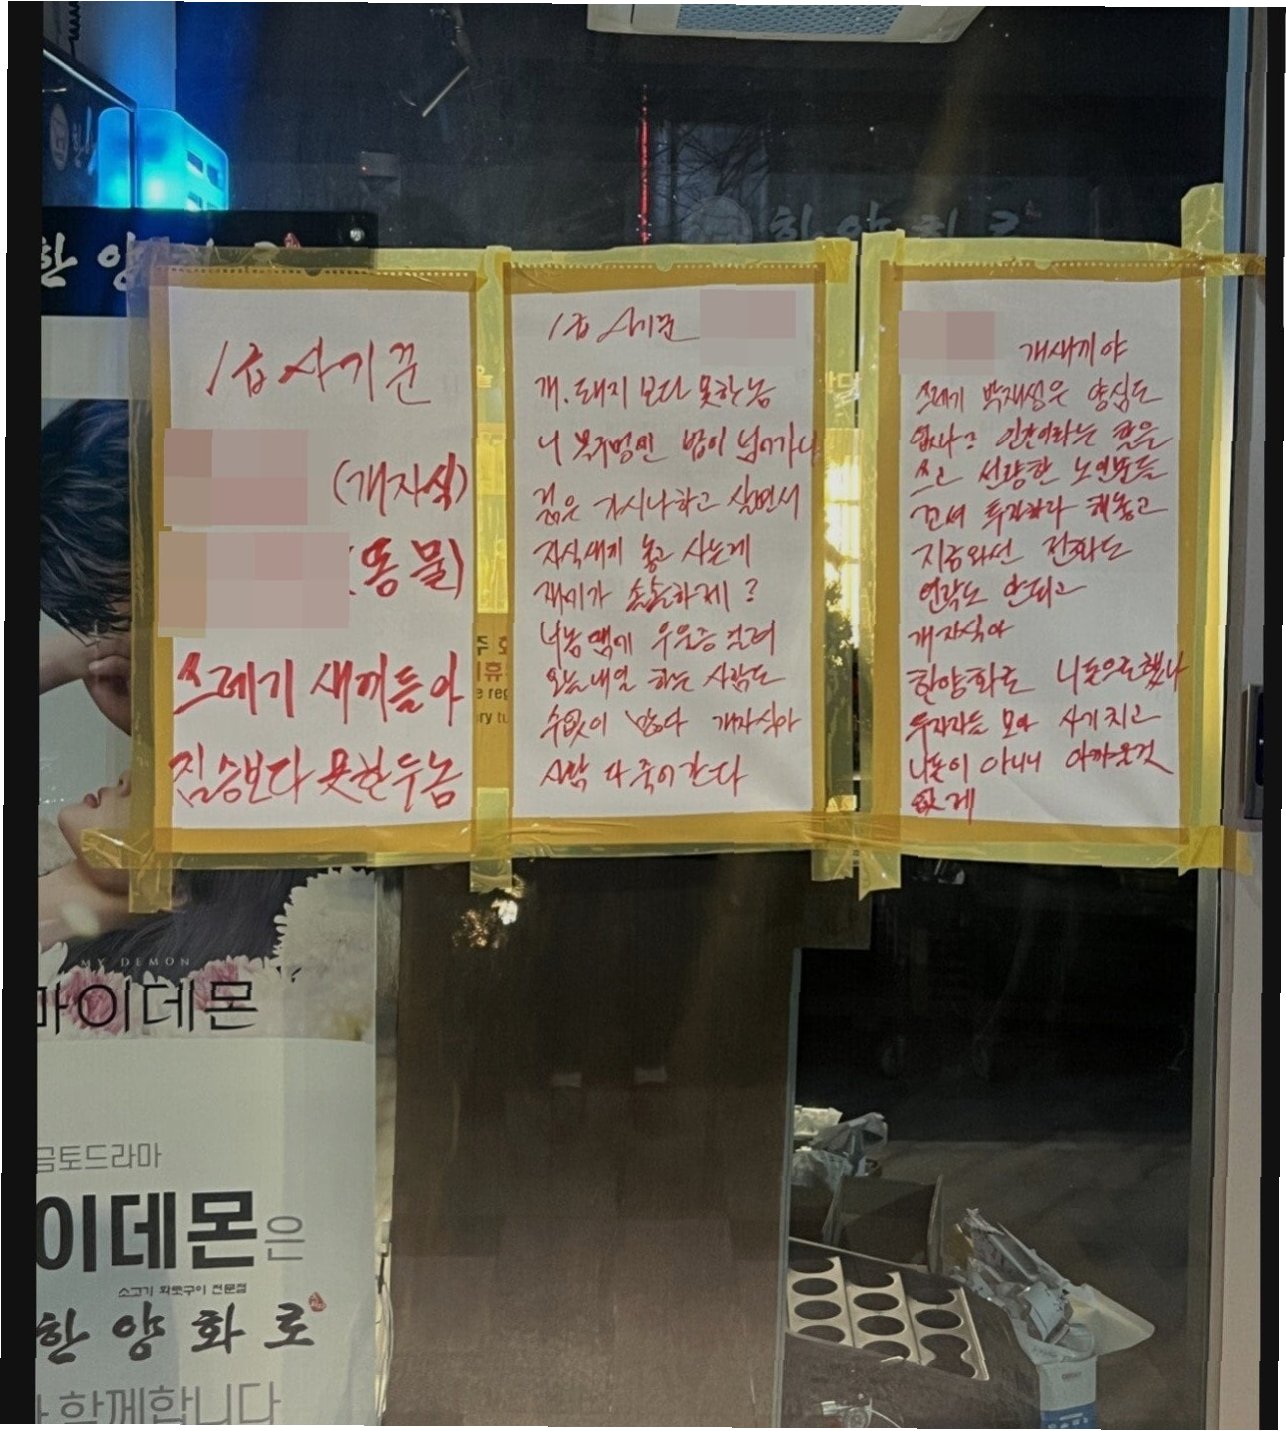 한양화로
1급 사기꾼
(개자식)
(동물)
쓰레기 새끼들아
짐승보다 못한 두놈
1급 사기꾼
개.돼지 보다 못한놈
니 목구멍엔 밥이 넘어가냐
젊은 가시나하고 살면서
자식새끼 놓고 사는게
재미가 솔솔하제?
너놈 땜에 우울증 걸려
오늘내일 하는 사람도
수없이 많다 개자식아
사람 다 죽어간다
개새끼야
쓰레기 박재성은 양심도
없나? 인간이라는 탈을
쓰고 선량한 노인분들
꼬셔 투자하라 해놓고
지금와선 전화도
연락도 안되고
개자식아
한양화로 니돈으로했나
투자자들 모아 사기치고
니돈이 아니니 아까운것
없제
MY DEMON
마이데몬
금토드라마
이데몬은
소고기 화롯구이 전문점
한양화로
함께합니다